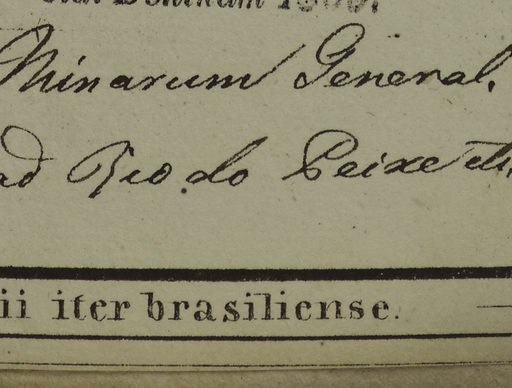 Minarum General.
ad Rio do Peixe etc.
ii iter brasiliense.